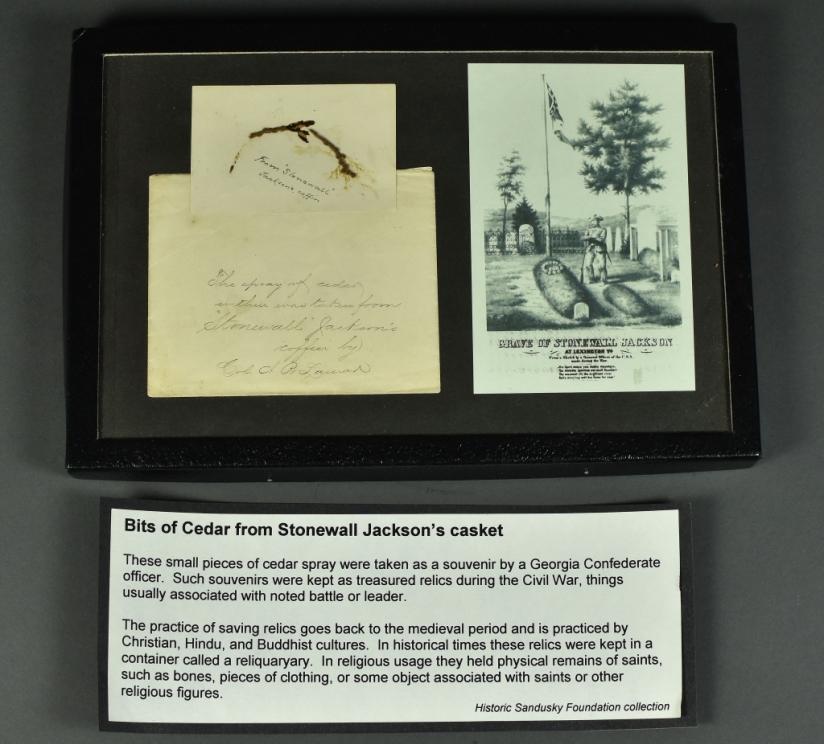 From "Stonewall"
Jackson's coffin
The spray of cedar
within was taken from
"Stonewall" Jackson's
coffin by
Col
GRAVE OF STONEWALL JACKSON
AT LEXINGTON VA
Bits of Cedar from Stonewall Jackson's casket
These small pieces of cedar spray were taken as a souvenir by a Georgia Confederate
officer. Such souvenirs were kept as treasured relics during the Civil War, things
usually associated with noted battle or leader.
The practice of saving relics goes back to the medieval period and is practiced by
Christian, Hindu, and Buddhist cultures. In historical times these relics were kept in a
container called a reliquaryary. In religious usage they held physical remains of saints,
such as bones, pieces of clothing, or some object associated with saints or other
religious figures.
Historic Sandusky Foundation collection